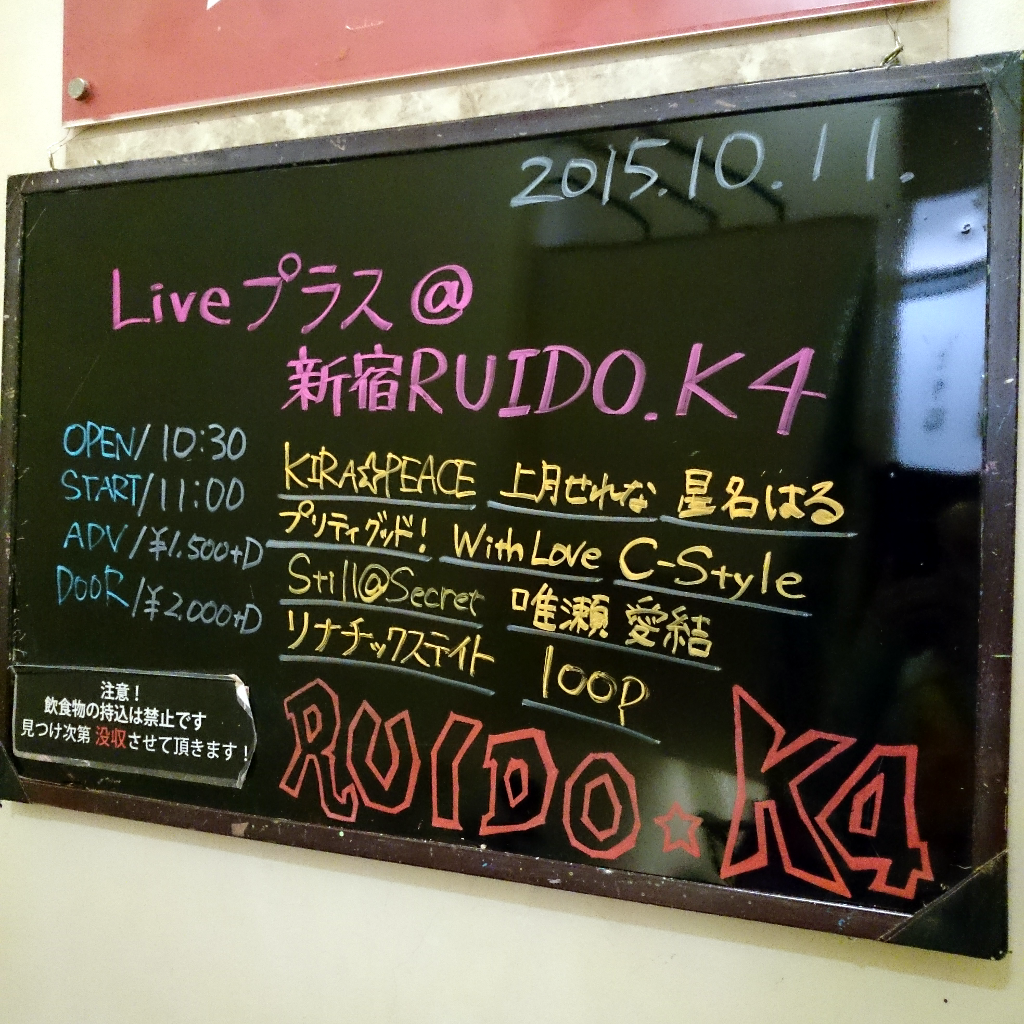 2015.10.11.
Liveプラス@
新宿RUIDO.K4
OPEN/10:30
START/11:00
ADV/¥1.500+D
DOOR/¥2.000+D
KIRA☆PEACE 上月せれな 星名はる
プリティグッド! With Love C-Style
Still@Secret 唯瀬 愛結
リナチックステイト loop
注意！
飲食物の持込は禁止です
見つけ次第 没収させて頂きます！
RUIDO.☆K4